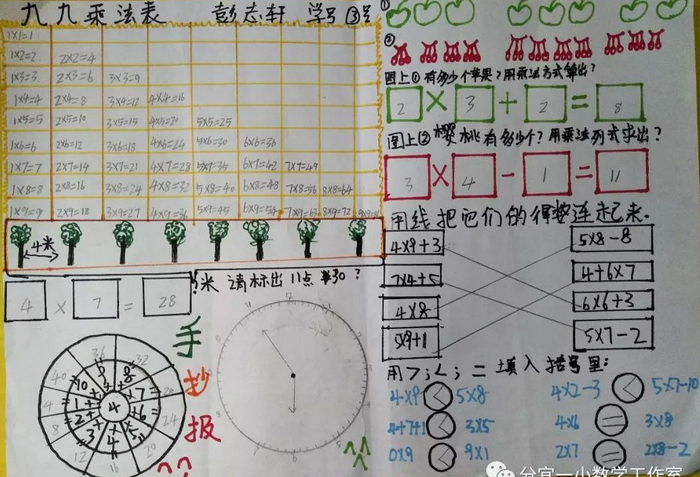 九九乘法表 彭志轩 学号13号
1×1=1
1×2=2 2×2=4
1×3=3 2×3=6 3×3=9
1×4=4 2×4=8 3×4=12 4×4=16
1×5=5 2×5=10 3×5=15 4×5=20 5×5=25
1×6=6 2×6=12 3×6=18 4×6=24 5×6=30 6×6=36
1×7=7 2×7=14 3×7=21 4×7=28 5×7=35 6×7=42 7×7=49
1×8=8 2×8=16 3×8=24 4×8=32 5×8=40 6×8=48 7×8=56 8×8=64
1×9=9 2×9=18 3×9=27 4×9=36 5×9=45 6×9=54 7×9=63 8×9=72
4米
4×7=28
米 请标出11点30?
手抄报
①
②
图上①有多少个苹果?用乘法方式算出?
2×3+2=8
图上②樱桃有多少个?用乘法列式求出?
3×4-1=11
用线把它们的得数连起来.
4×9+3 5×8-8
7×4+5 4+6×7
4×8 6×6+3
5×9+1 5×7-2
用>;<;=填入括号里:
4×9<5×8 4×2-3<5×7-10
4+7+1<3×5 4×6=3×8
0×9<9×1 2×7=2×8-2
分宜一小数学工作室